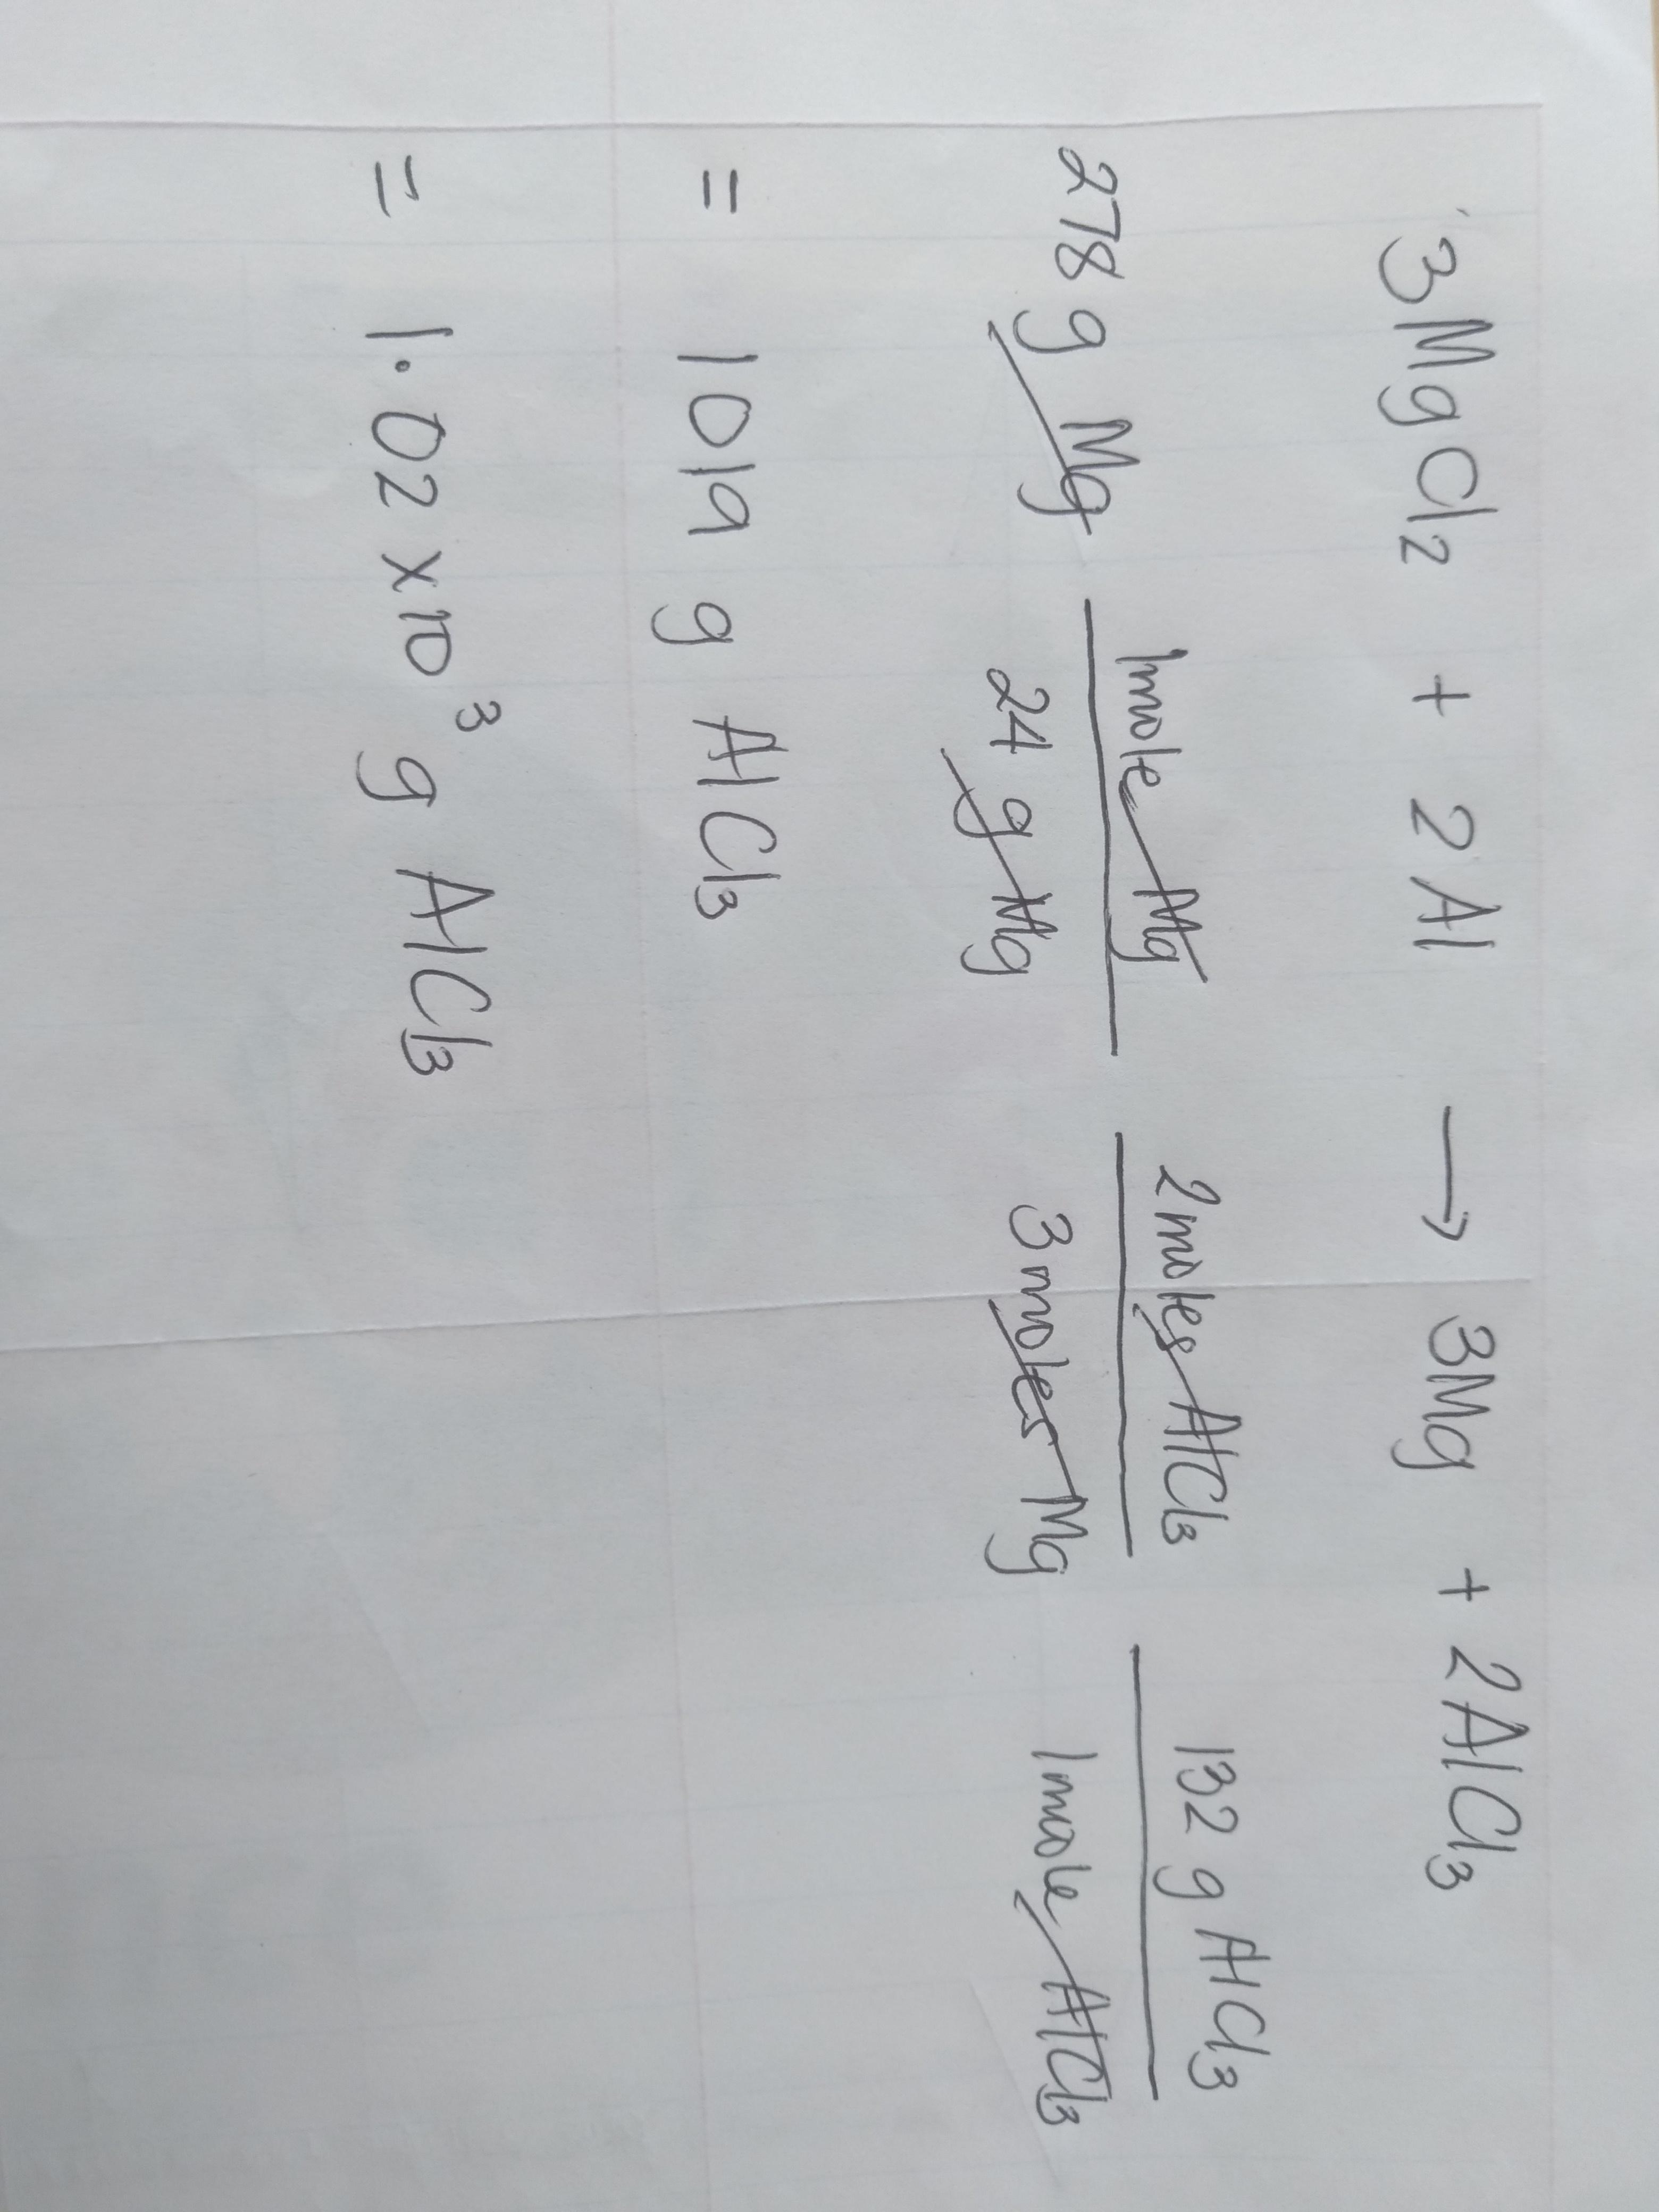 3MgCl₂ + 2Al → 3Mg + 2AlCl₃
278 g Mg 1mole Mg / 24 g Mg 2moles AlCl₃ / 3moles Mg 132 g AlCl₃ / 1mole AlCl₃
= 1019 g AlCl₃
= 1.02 x 10³ g AlCl₃